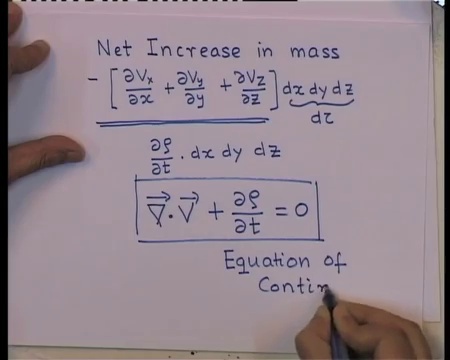 Net Increase in mass
- [ ∂Vx/∂x + ∂Vy/∂y + ∂Vz/∂z ] dx dy dz
dτ
∂ρ/∂t . dx dy dz
∇⃗·V⃗ + ∂ρ/∂t = 0
Equation of
Contin